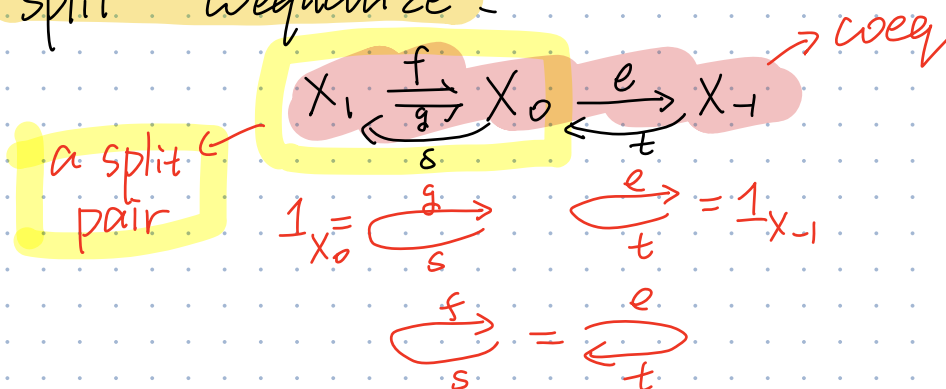 split coequalize
coeq
X₁ f g X₀ e X₋₁
s t
a split
pair
1_X₀ = g s
e t = 1_X₋₁
f s = e t